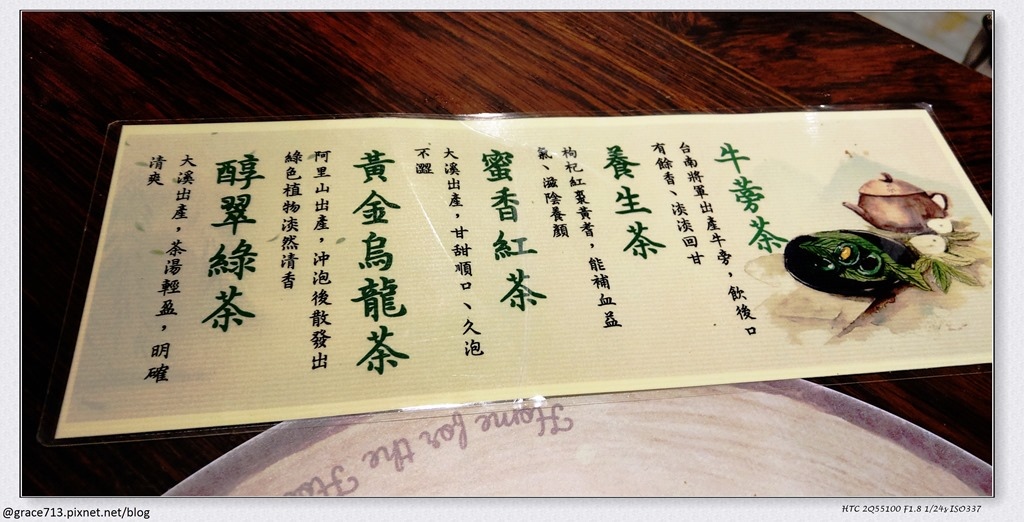 牛蒡茶
台南將軍出產牛蒡，飲後口
有餘香、淡淡回甘
養生茶
枸杞紅棗黃耆，能補血益
氣、滋陰養顏
蜜香紅茶
大溪出產，甘甜順口、久泡
不澀
黃金烏龍茶
阿里山出產，沖泡後散發出
綠色植物淡然清香
醇翠綠茶
大溪出產，茶湯輕盈，明確
清爽
Home for the
@grace713.pixnet.net/blog
HTC 2Q55100 F1.8 1/24s ISO337